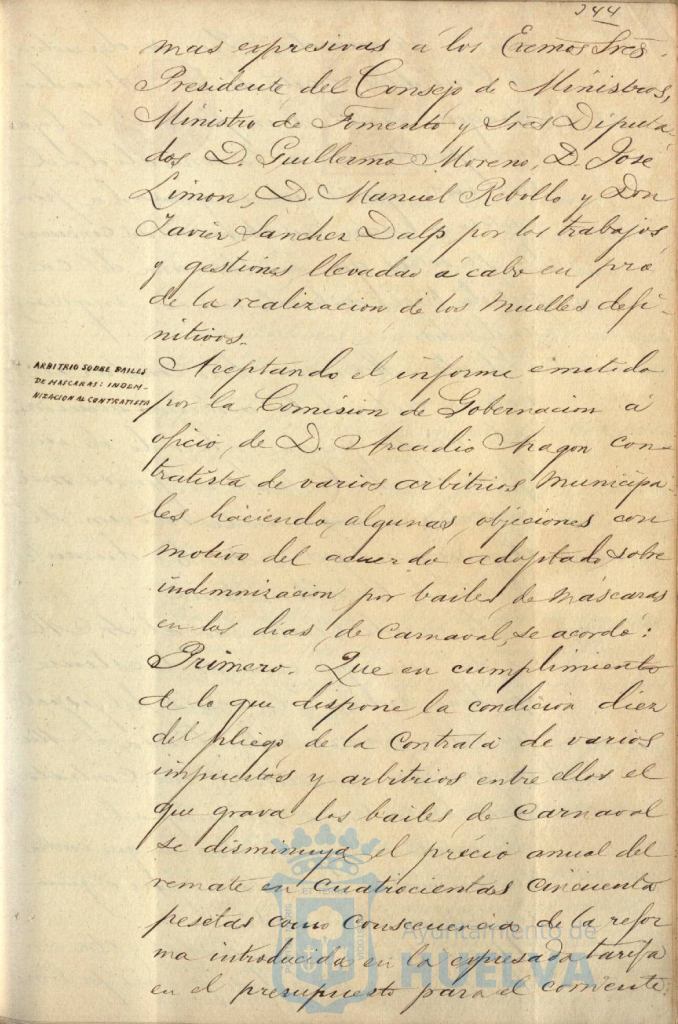 244
mas expresivas á los Exemos Sres.
Presidente del Consejo de Ministros,
Ministro de Fomento y Sres Diputa
dos D. Guillermo Moreno, D. José
Limon, D. Manuel Rebollo y Don
Javier Sanchez Dalp por los trabajos
y gestiones llevadas á cabo en pró
de la realizacion de los Muelles defi-
nitivos.
ARBITRIO SOBRE BAILES
DE MASCARAS: INDEM-
NIZACION AL CONTRATISTA
Aceptando el informe emitido
por la Comision de Gobernacion á
oficio, de D. Arcadio Aragon con-
tratista de varios arbitrios Municipa-
les haciendo algunas objeciones con
motivo del acuerdo adoptado sobre
indemnizacion por bailes de Máscaras
en los dias de Carnaval, se acordó:
Primero. Que en cumplimiento
de lo que dispone la condicion diez
del pliego de la Contrata de varios
impuestos y arbitrios entre ellos el
que grava los bailes de Carnaval
se disminuya el precio anual del
remate en Cuatrocientas Cincuenta
pesetas como Consecuencia de la refor
ma introducida en la expresada tarifa
en el presupuesto para el corriente
Ayuntamiento de
HUELVA